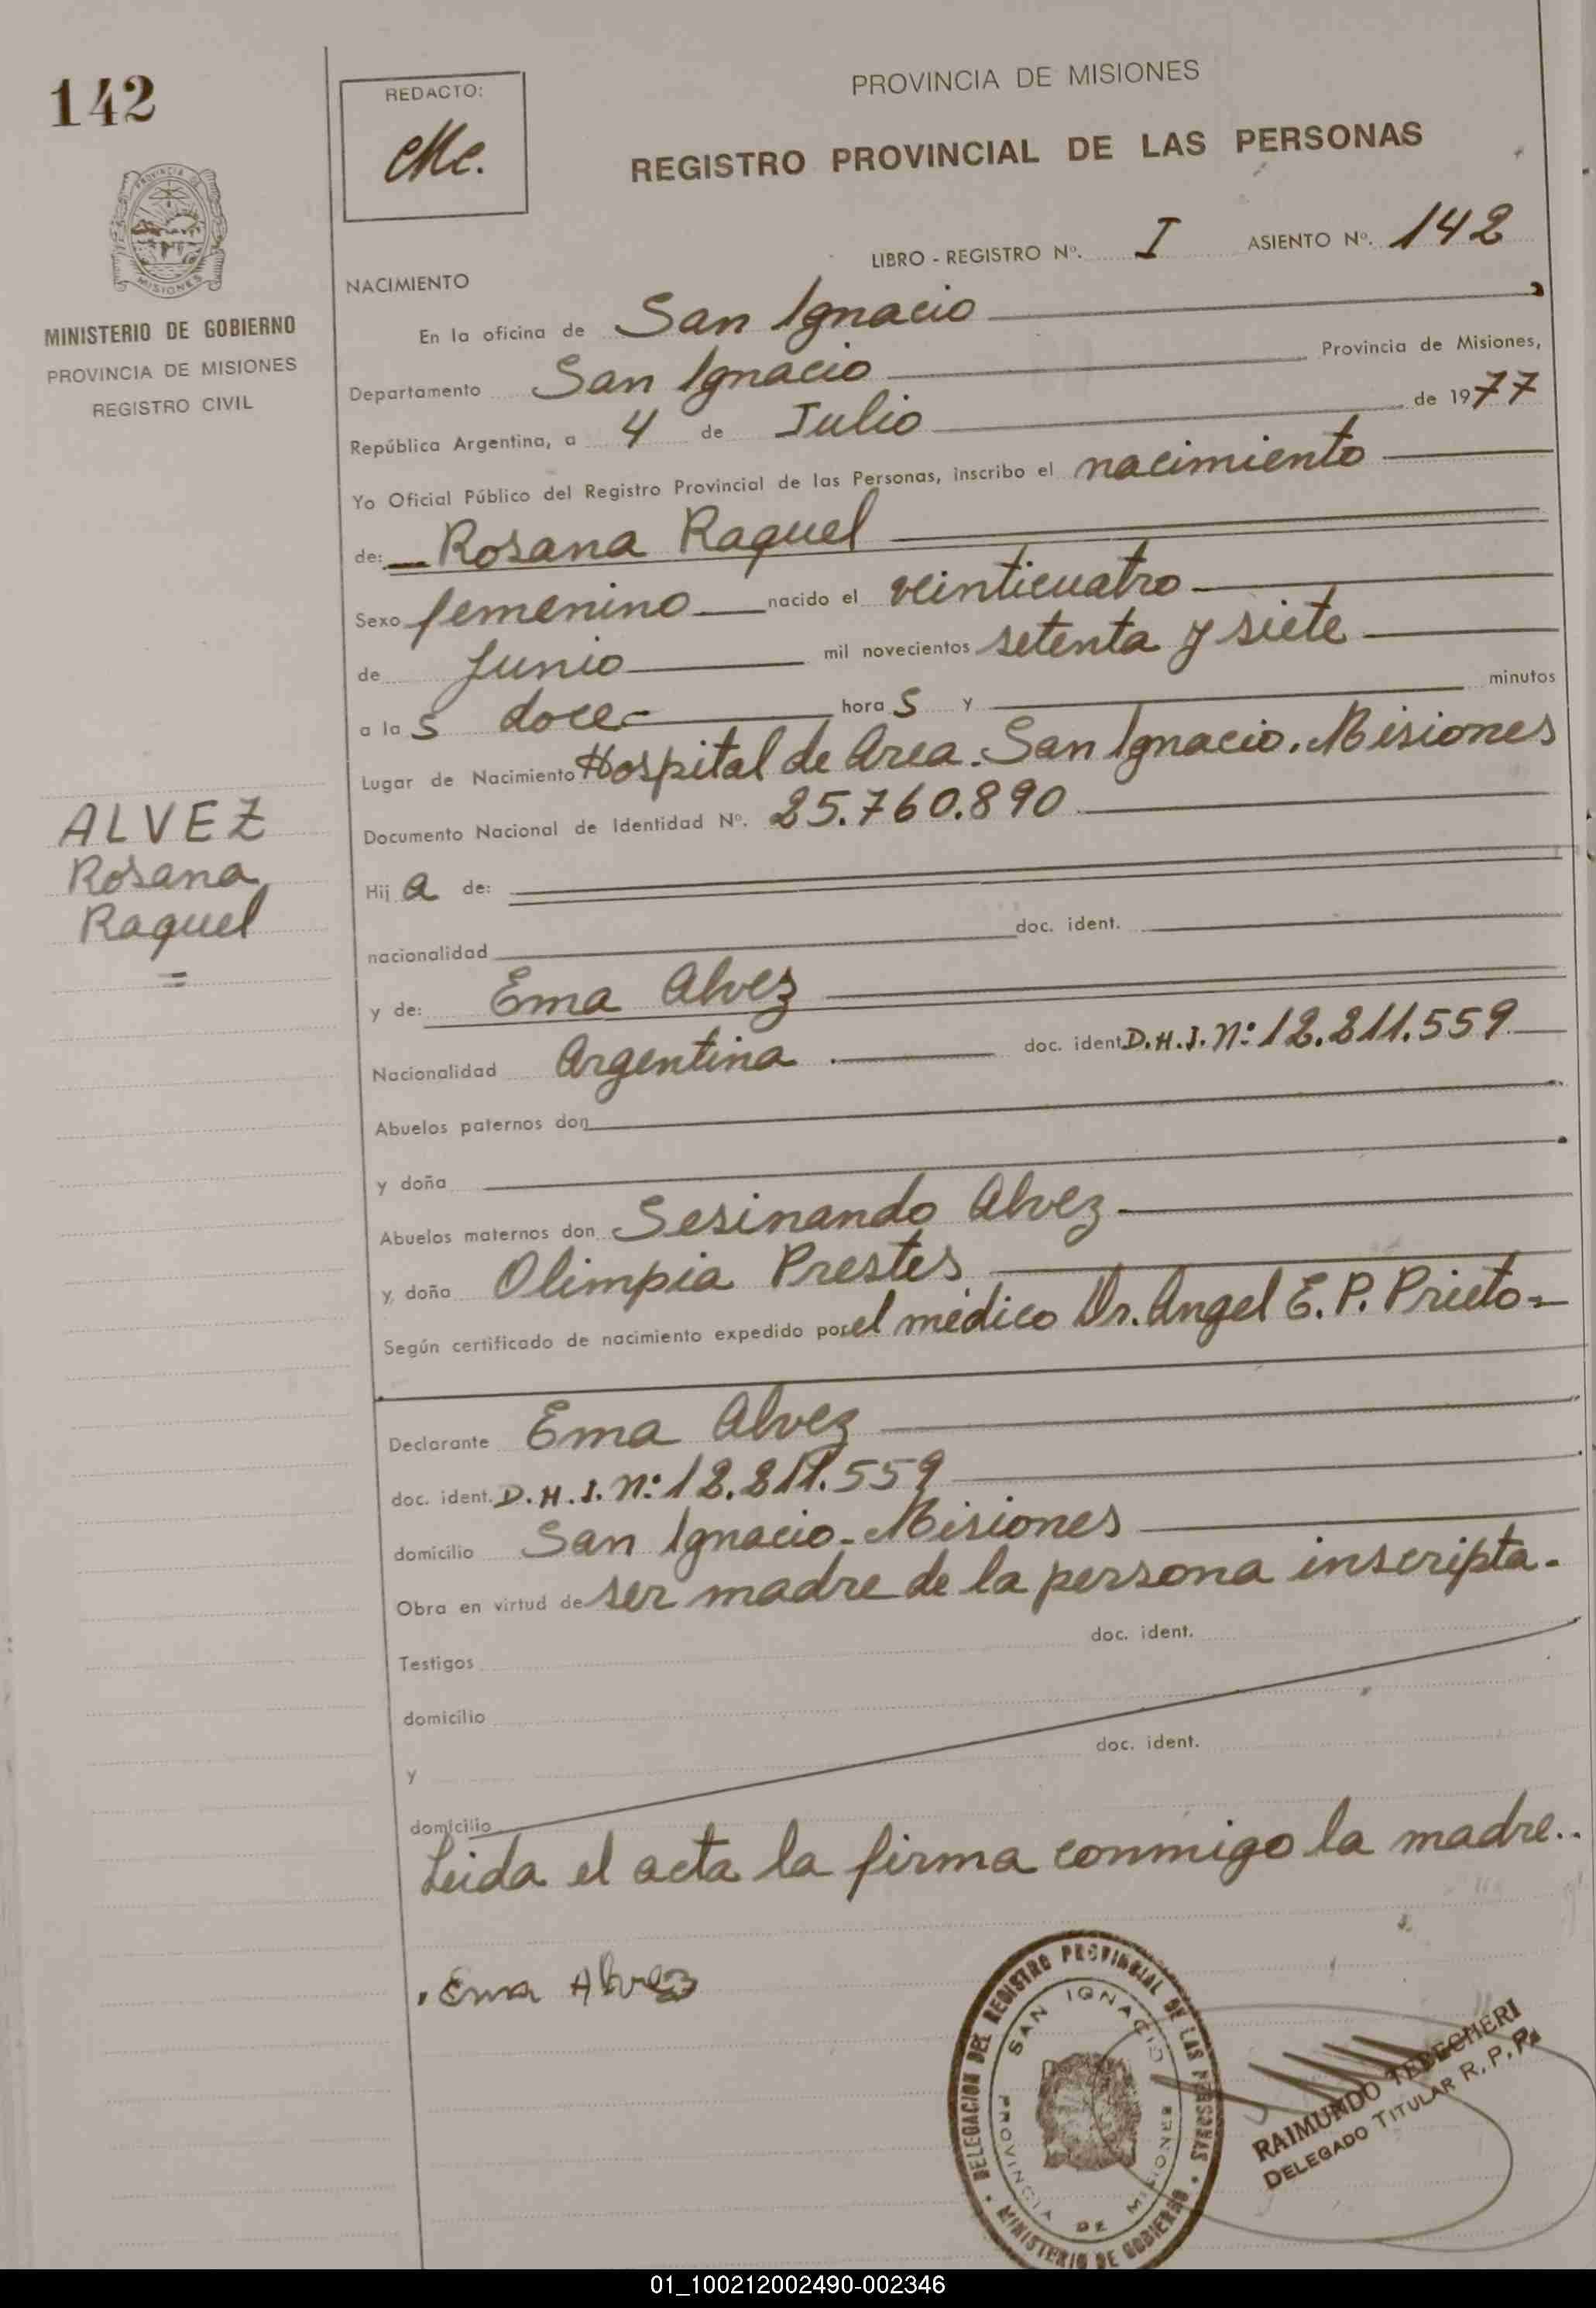 142
REDACTO:
Mc.
PROVINCIA DE MISIONES
REGISTRO PROVINCIAL DE LAS PERSONAS
LIBRO - REGISTRO Nº. I ASIENTO Nº. 142
PROVINCIA DE
MISIONES
MINISTERIO DE GOBIERNO
PROVINCIA DE MISIONES
REGISTRO CIVIL
NACIMIENTO
En la oficina de San Ignacio
Departamento San Ignacio Provincia de Misiones,
República Argentina, a 4 de Julio de 1977
Yo Oficial Público del Registro Provincial de las Personas, inscribo el nacimiento
de: Rosana Raquel
Sexo femenino nacido el veinticuatro
de Junio mil novecientos setenta y siete
a las doce hora s y minutos
Lugar de Nacimiento Hospital de Area. San Ignacio. Misiones
Documento Nacional de Identidad Nº. 25.760.890
ALVEZ
Rosana
Raquel
=
Hij a de:
nacionalidad doc. ident.
y de: Ema Alvez
Nacionalidad Argentina doc. ident D.N.I. Nº: 12.211.559
Abuelos paternos don
y doña
Abuelos maternos don Sesinando Alvez
y, doña Olimpia Prestes
Según certificado de nacimiento expedido por el médico Dr. Angel E. P. Prieto
Declarante Ema Alvez
doc. ident. D.N.I. Nº: 12.211.559
domicilio San Ignacio - Misiones
Obra en virtud de ser madre de la persona inscripta.
Testigos doc. ident.
domicilio
y doc. ident.
domicilio
Leida el acta la firma conmigo la madre..
Ema Alvez
DELEGACION DEL REGISTRO PROVINCIAL DE LAS PERSONAS
SAN IGNACIO
PROVINCIA DE MISIONES
MINISTERIO DE GOBIERNO
RAIMUNDO
DELEGADO TITULAR R. P. P.
01_100212002490-002346